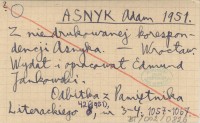 ASNYK Adam 1951.
Z niedrukowanej korespon-
dencji Asnyka. — Wrocław.
Wydał i opracował Edmund
Jankowski.
Odbitka z Pamiętnika
Literackiego 42(1951), nr 3-4, 1057-1067